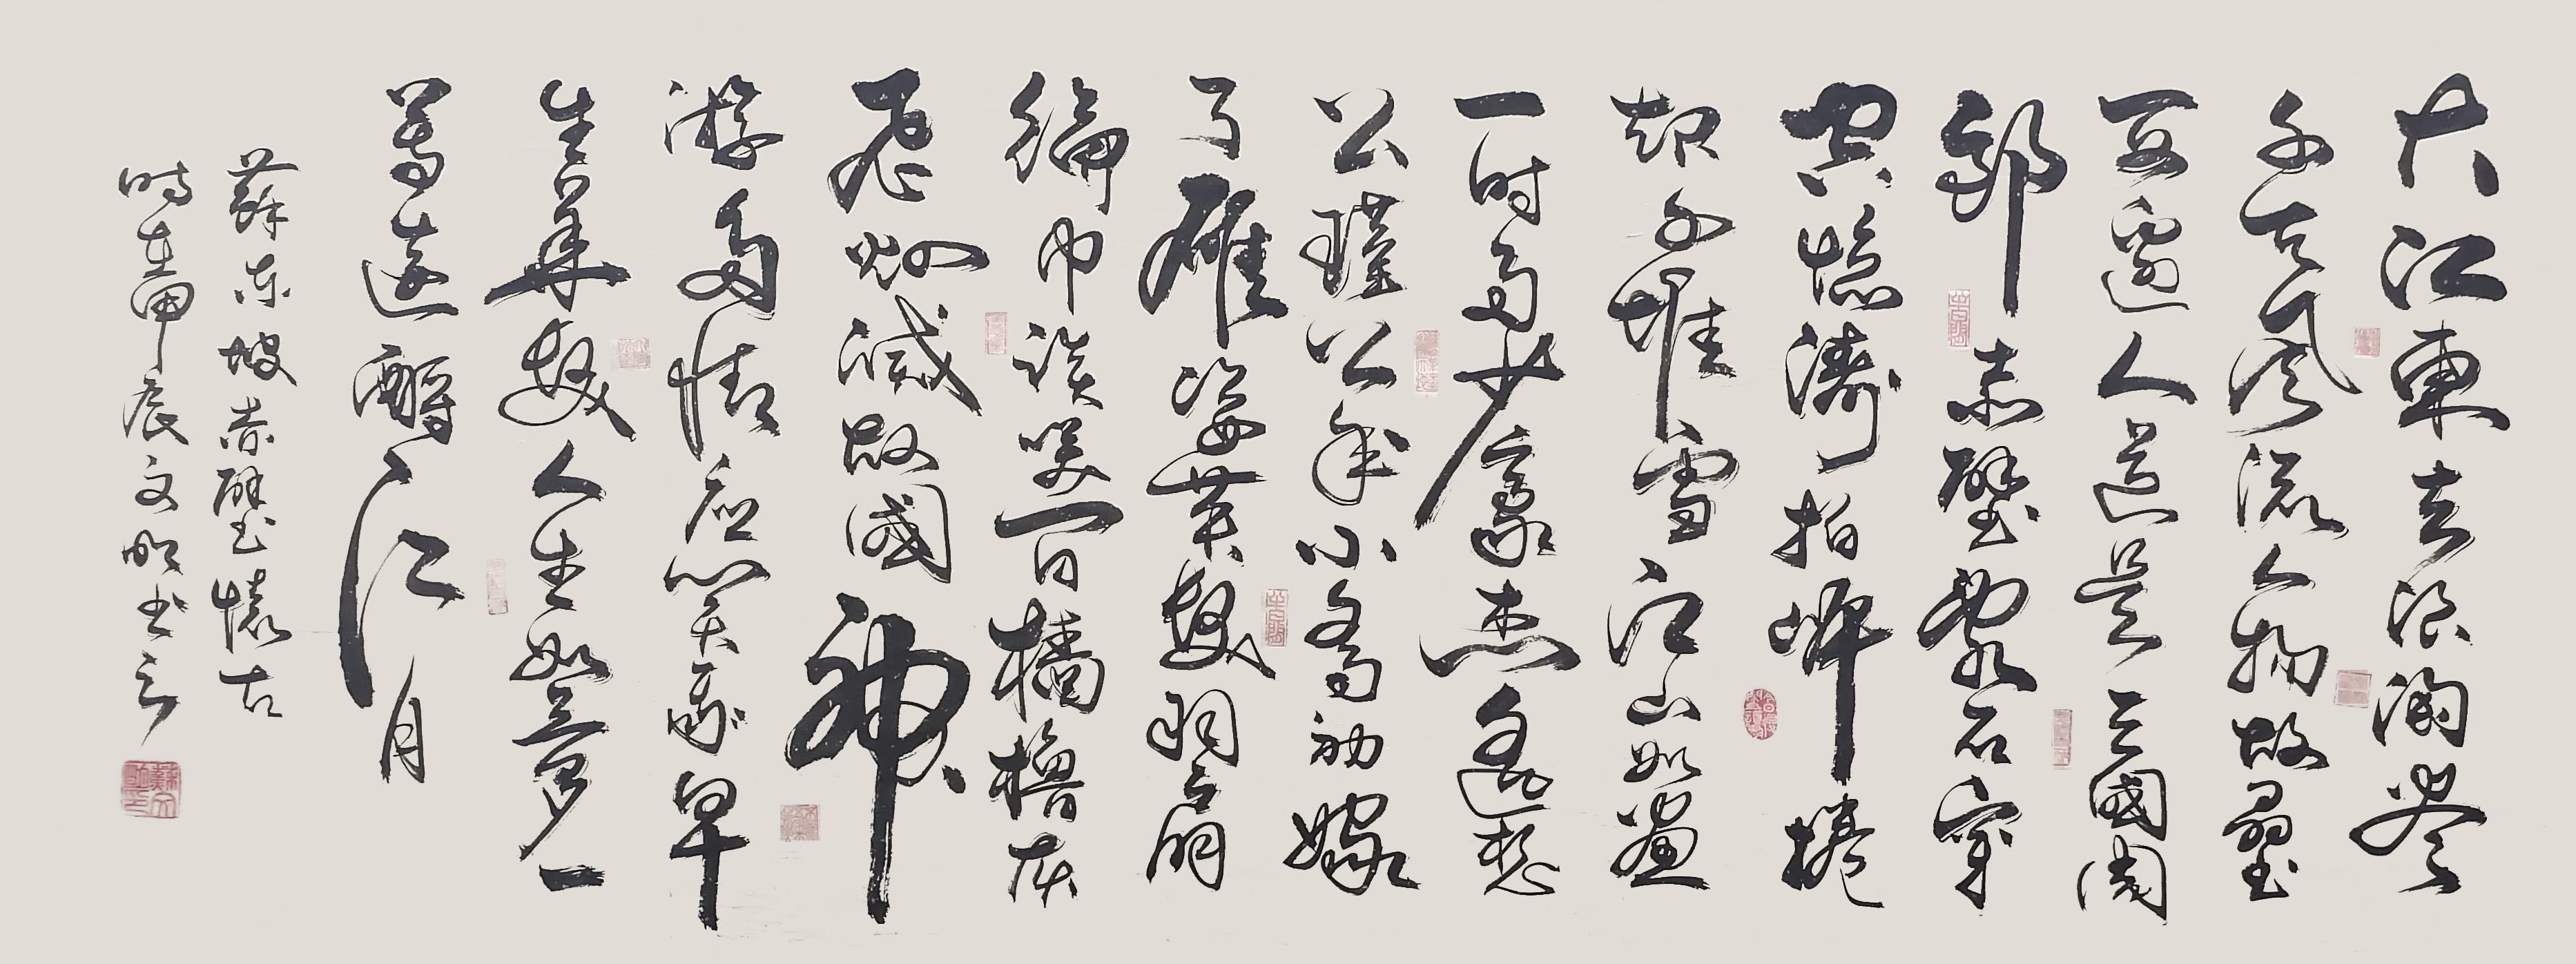 大江東去浪淘尽
千古風流人物故壘
西邊人道是三國周
郎赤壁亂石穿
空惊濤拍岸捲
起千堆雪江山如畫
一时多少豪杰遙想
公瑾當年小喬初嫁
了雄姿英發羽扇
綸巾談笑間檣櫓灰
飛烟滅故國神
游多情應笑我早
生華髮人生如夢一
尊還酹江月
蘇东坡赤壁懷古
時在甲辰文书